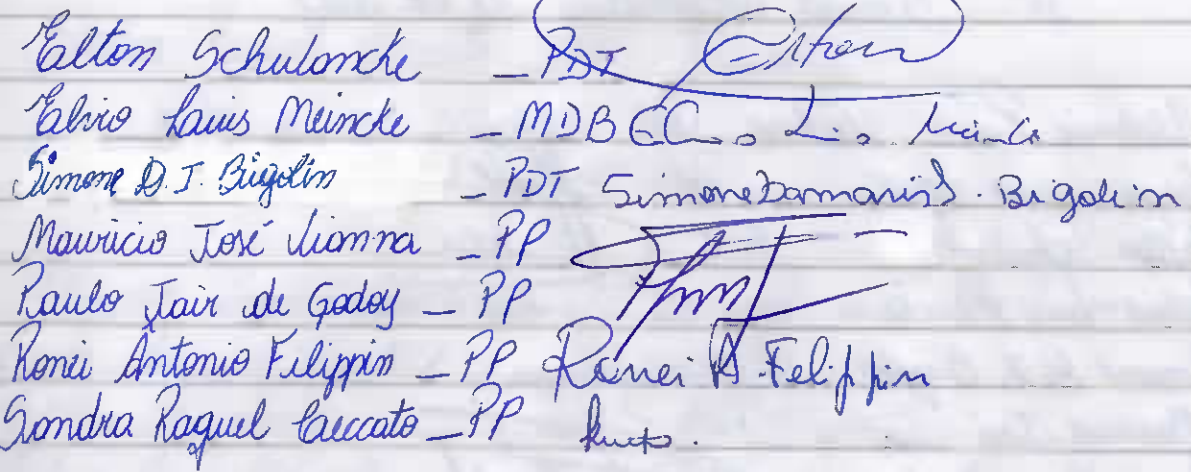 Elton Schuloncke _ PDT Elton
Elvio Luis Meincke _ MDB
Simone D. J. Bigolin _ PDT Simone Damaris J. Bigolin
Mauricio José Vianna _ PP
Paulo Jair de Godoy _ PP
Ronei Antonio Filippin _ PP Ronei A. Felippin
Sandra Raquel Ceccato _ PP